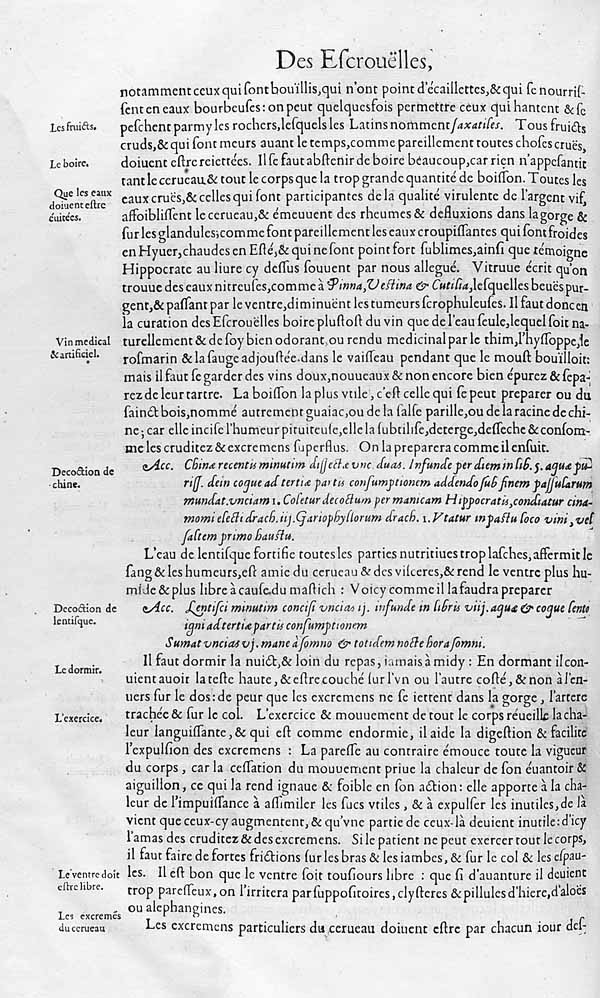 Des Eſcrouëlles,
notamment ceux qui ſont bouïllis, qui n'ont point d'écaillettes, & qui ſe nourriſ-
ſent en eaux bourbeuſes: on peut quelquesfois permettre ceux qui hantent & ſe
Les fruicts.
peſchent parmy les rochers, leſquels les Latins nomment ſaxatiles. Tous fruicts
cruds, & qui ſont meurs auant le temps, comme pareillement toutes choſes cruës,
Le boire.
doiuent eſtre reiettées. Il ſe faut abſtenir de boire beaucoup, car rien n'appeſantit
tant le cerueau, & tout le corps que la trop grande quantité de boiſſon. Toutes les
Que les eaux
doiuent eſtre
éuitées.
eaux cruës, & celles qui ſont participantes de la qualité virulente de l'argent vif,
affoibliſſent le cerueau, & émeuuent des rheumes & defluxions dans la gorge &
ſur les glandules; comme font pareillement les eaux croupiſſantes qui ſont froides
en Hyuer, chaudes en Eſté, & qui ne ſont point fort ſublimes, ainſi que témoigne
Hippocrate au liure cy deſſus ſouuent par nous allegué. Vitruue écrit qu'on
trouue des eaux nitreuſes, comme à Pinna, Veſtina & Cutilia, leſquelles beuës pur-
gent, & paſſant par le ventre, diminuënt les tumeurs ſcrophuleuſes. Il faut donc en
la curation des Eſcrouëlles boire pluſtoſt du vin que de l'eau ſeule, lequel ſoit na-
Vin medical
& artificiel.
turellement & de ſoy bien odorant, ou rendu medicinal par le thim, l'hyſſoppe, le
roſmarin & la ſauge adjouſtée dans le vaiſſeau pendant que le mouſt bouïlloit:
mais il faut ſe garder des vins doux, nouueaux & non encore bien épurez & ſepa-
rez de leur tartre. La boiſſon la plus vtile, c'eſt celle qui ſe peut preparer ou du
ſainct bois, nommé autrement guaiac, ou de la ſalſe parille, ou de la racine de chi-
ne; car elle inciſe l'humeur pituiteuſe, elle la ſubtiliſe, deterge, deſſeche & conſom-
me les cruditez & excremens ſuperflus. On la preparera comme il enſuit.
Decoction de
chine.
Acc. Chinæ recentis minutim diſſectæ vnc. duas. Infunde per diem in lib. 5. aquæ pu-
riſſ. dein coque ad tertiæ partis conſumptionem addendo ſub finem paſſularum
mundat. vnciam 1. Coletur decoctum per manicam Hippocratis, condiatur cina-
momi electi drach. iij. Gariophyllorum drach. 1. Vtatur in paſtu loco vini, vel
ſaltem primo hauſtu.
L'eau de lentiſque fortifie toutes les parties nutritiues trop laſches, affermit le
ſang & les humeurs, eſt amie du cerueau & des viſceres, & rend le ventre plus hu-
mide & plus libre à cauſe du maſtich : Voicy comme il la faudra preparer
Decoction de
lentiſque.
Acc. Lentiſci minutim conciſi vncias ij. infunde in libris viij. aquæ & coque lento
igni ad tertiæ partis conſumptionem
Sumat vncias vj. mane à ſomno & totidem nocte hora ſomni.
Le dormir.
Il faut dormir la nuict, & loin du repas, iamais à midy : En dormant il con-
uient auoir la teſte haute, & eſtre couché ſur l'vn ou l'autre coſté, & non à l'en-
uers ſur le dos: de peur que les excremens ne ſe iettent dans la gorge, l'artere
L'exercice.
trachée & ſur le col. L'exercice & mouuement de tout le corps réueille la cha-
leur languiſſante, & qui eſt comme endormie, il aide la digeſtion & facilite
l'expulſion des excremens : La pareſſe au contraire émouce toute la vigueur
du corps, car la ceſſation du mouuement priue la chaleur de ſon éuantoir &
aiguillon, ce qui la rend ignaue & foible en ſon action: elle apporte à la cha-
leur de l'impuiſſance à aſſimiler les ſucs vtiles, & à expulſer les inutiles, de là
vient que ceux-cy augmentent, & qu'vne partie de ceux-là deuient inutile: d'icy
l'amas des cruditez & des excremens. Si le patient ne peut exercer tout le corps,
il faut faire de fortes frictions ſur les bras & les iambes, & ſur le col & les eſpau-
Le ventre doit
eſtre libre.
les. Il eſt bon que le ventre ſoit touſiours libre : que ſi d'auanture il deuient
trop pareſſeux, on l'irritera par ſuppoſitoires, clyſteres & pillules d'hiere, d'aloës
ou alephangines.
Les excremēs
du cerueau
Les excremens particuliers du cerueau doiuent eſtre par chacun iour deſ-